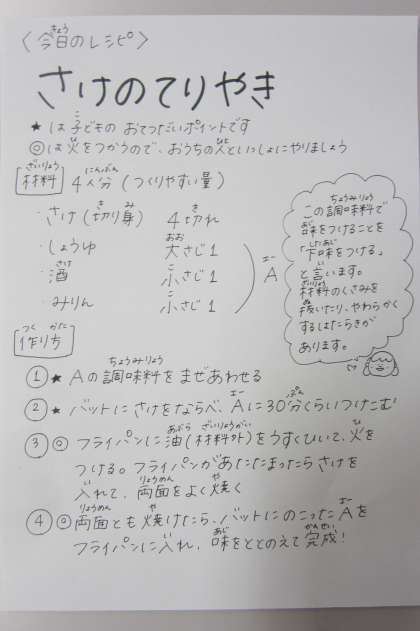 〈今日のレシピ〉
さけのてりやき
★は子どものおてつだいポイントです
◎は火をつかうので、おうちの人といっしょにやりましょう
材料 4人分(つくりやすい量)
・さけ(切り身) 4切れ
・しょうゆ 大さじ1
・酒 小さじ1
・みりん 小さじ1
A
この調味料で
味をつけることを
「下味をつける」
と言います。
材料のくさみを
抜いたり、やわらかく
するはたらきが
あります。
作り方
① ★ Aの調味料をまぜあわせる
② ★ バットにさけをならべ、Aに30分くらいつけこむ
③ ◎ フライパンに油(材料外)をうすくひいて、火を
つける。フライパンがあたたまったらさけを
入れて、両面をよく焼く
④ ◎ 両面とも焼けたら、バットにのこったAを
フライパンに入れ、味をととのえて完成!